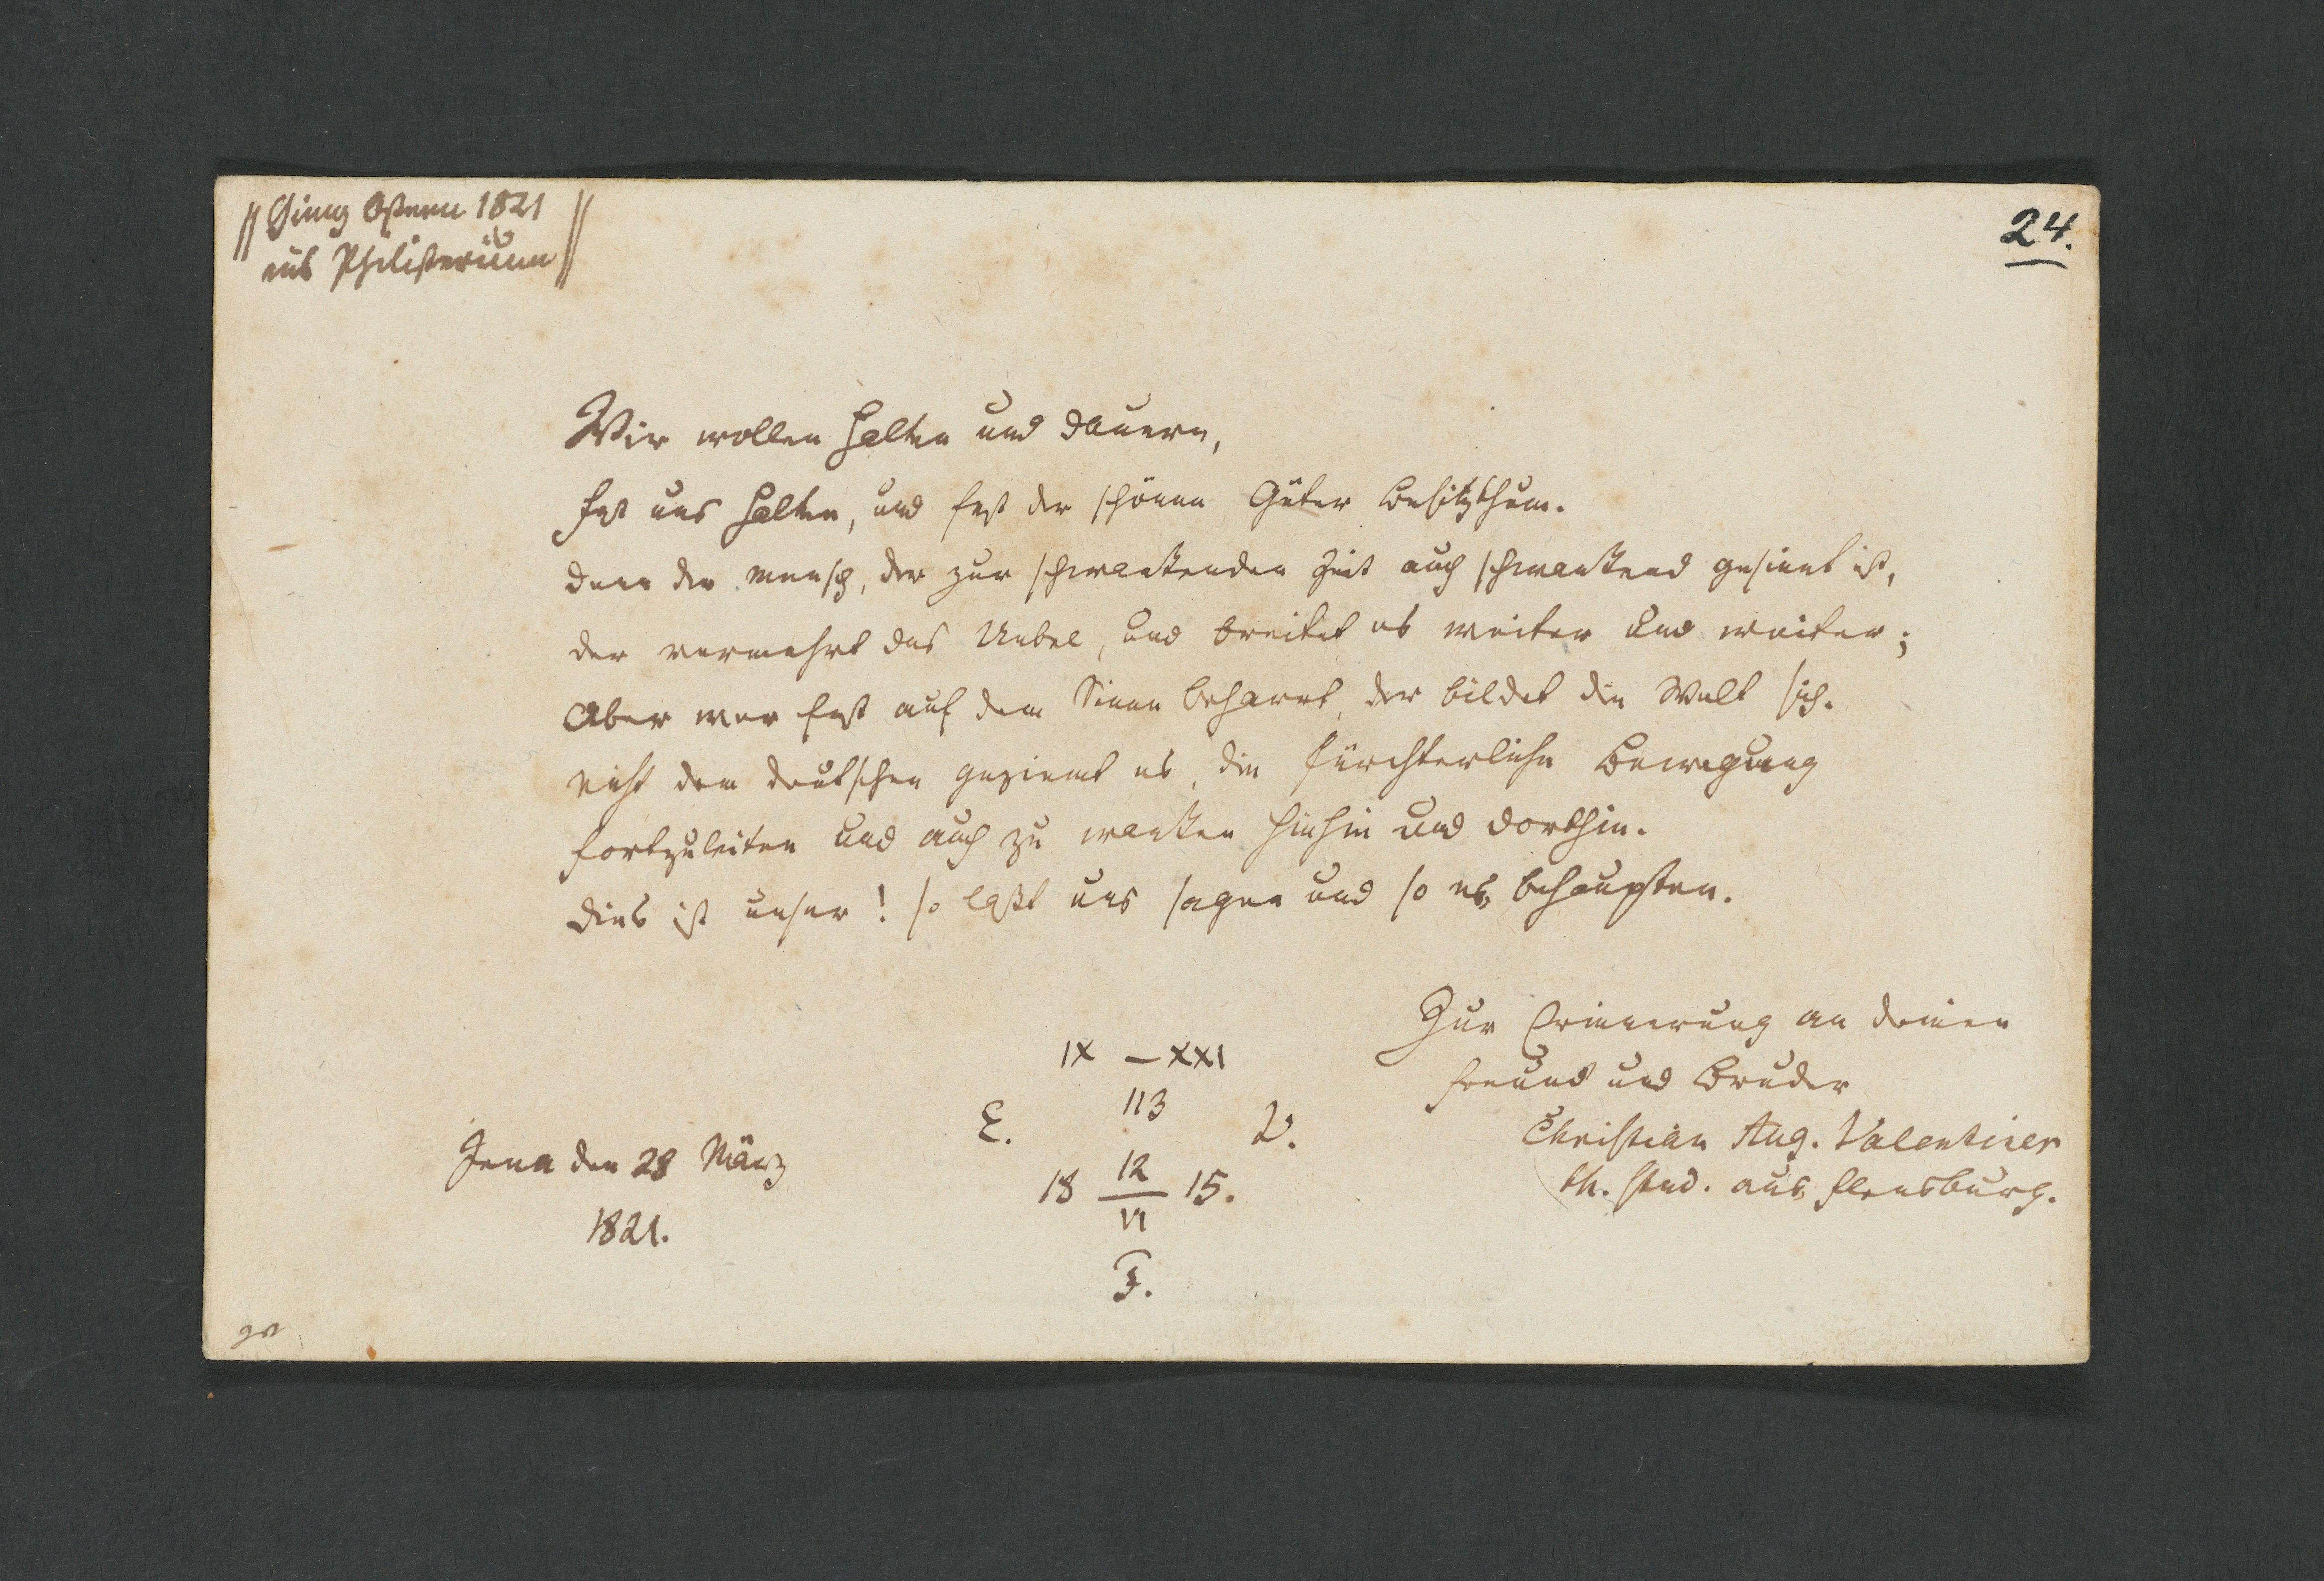 Ging Ostern 1821
ins Philisterium
24.
Wir wollen halten und dauern,
fest uns halten, und fest der schönen Güter Besitzthum.
denn der Mensch, der zur schwankenden Zeit auch schwankend gesinnt ist,
der vermehrt das Uebel, und breitet es weiter und weiter;
Aber wer fest auf dem Sinne beharrt, der bildet die Welt sich.
Nicht dem deutschen geziemt es, die fürchterliche Bewegung
fortzuleiten und auch zu wanken hiehin und dorthin.
dies ist unser! so laßt uns sagen und so es behaupten.
Zur Erinnerung an deinen
Freund und Bruder
Christian Aug. Valentiner
th. stud. aus Flensburg.
IX – XXI
113
E. V.
18 12/VI 15.
F.
Jena den 28 März
1821.